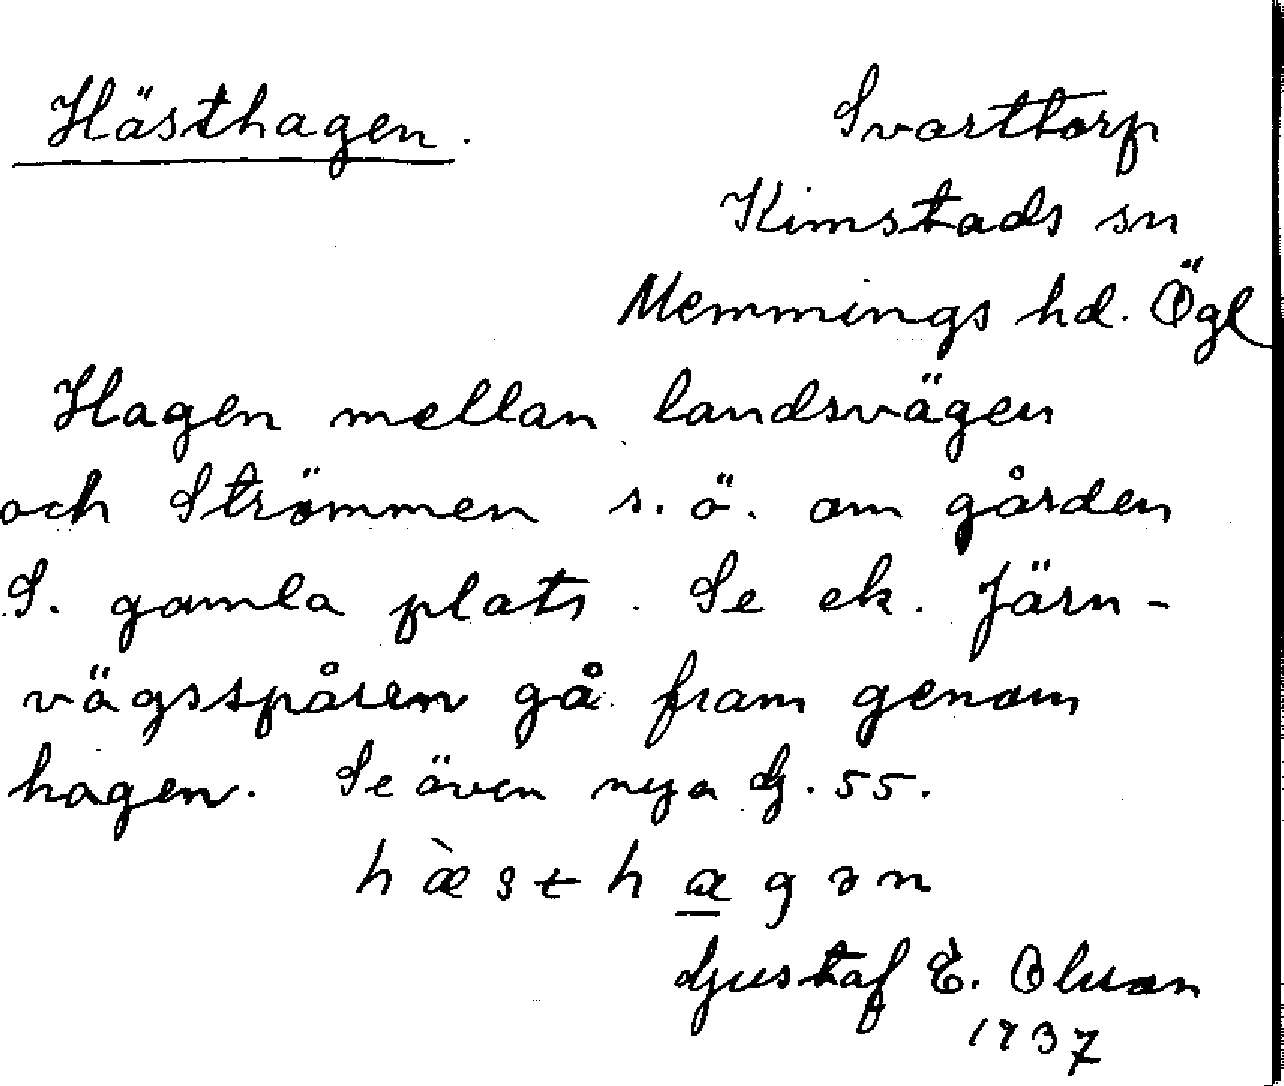 Hästhagen.
Svarttorp
Kimstads sn
Memmings hd. Ögl
Hagen mellan landsvägen
och Strömmen s.ö. om gården
S. gamla plats. Se ek. Järn-
vägsspåren gå fram genom
hagen. Se även nya G. 55.
hæ̀sthagən
Gustaf E. Olsson
1937